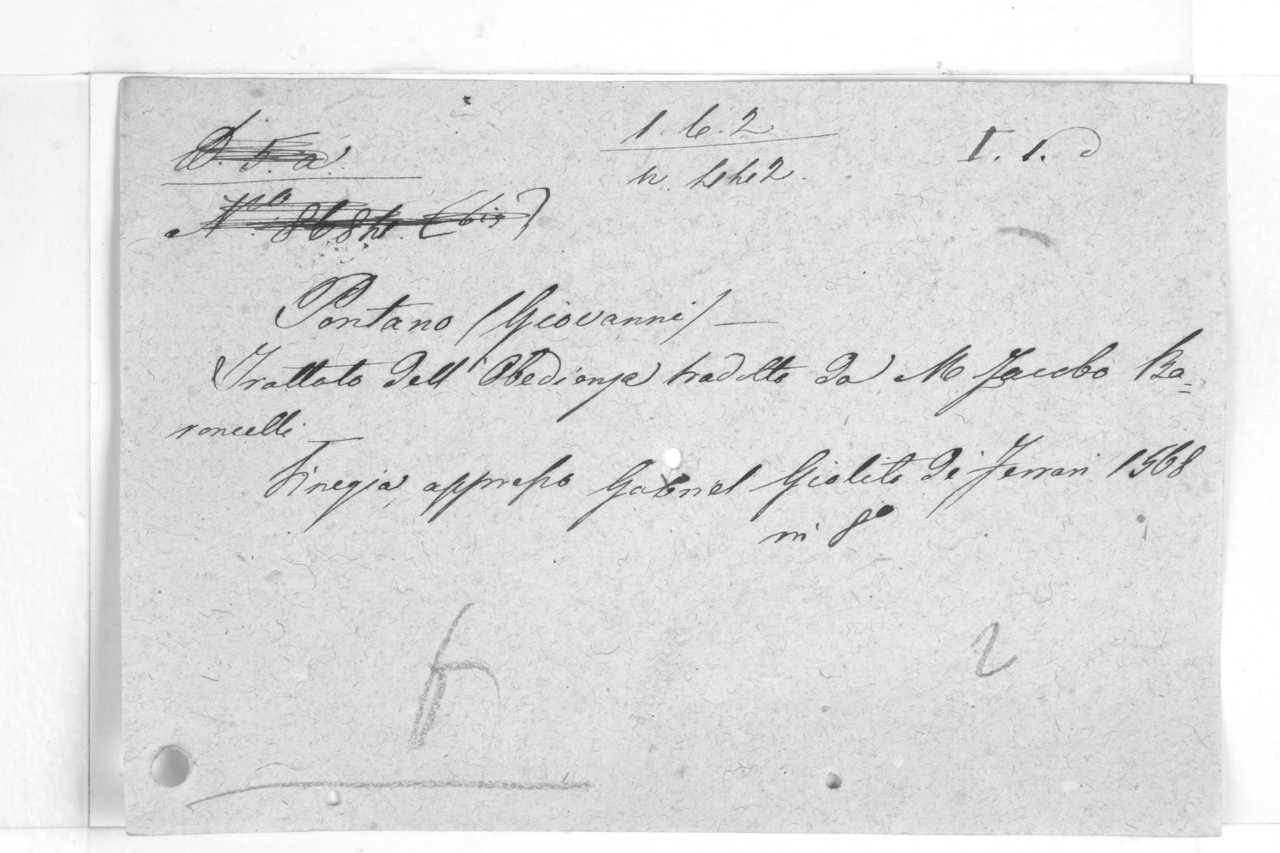 D. 5. a.
1. 6. 2
I. 1.
Nro. 8684. (bis)
n. 442.
Pontano (Giovanni) —
Trattato dell' Obedienza tradotto da M Jacobo Ba=
roncelli
Vinegia, appresso Gabriel Giolito di Ferrari 1568
in 8º
2